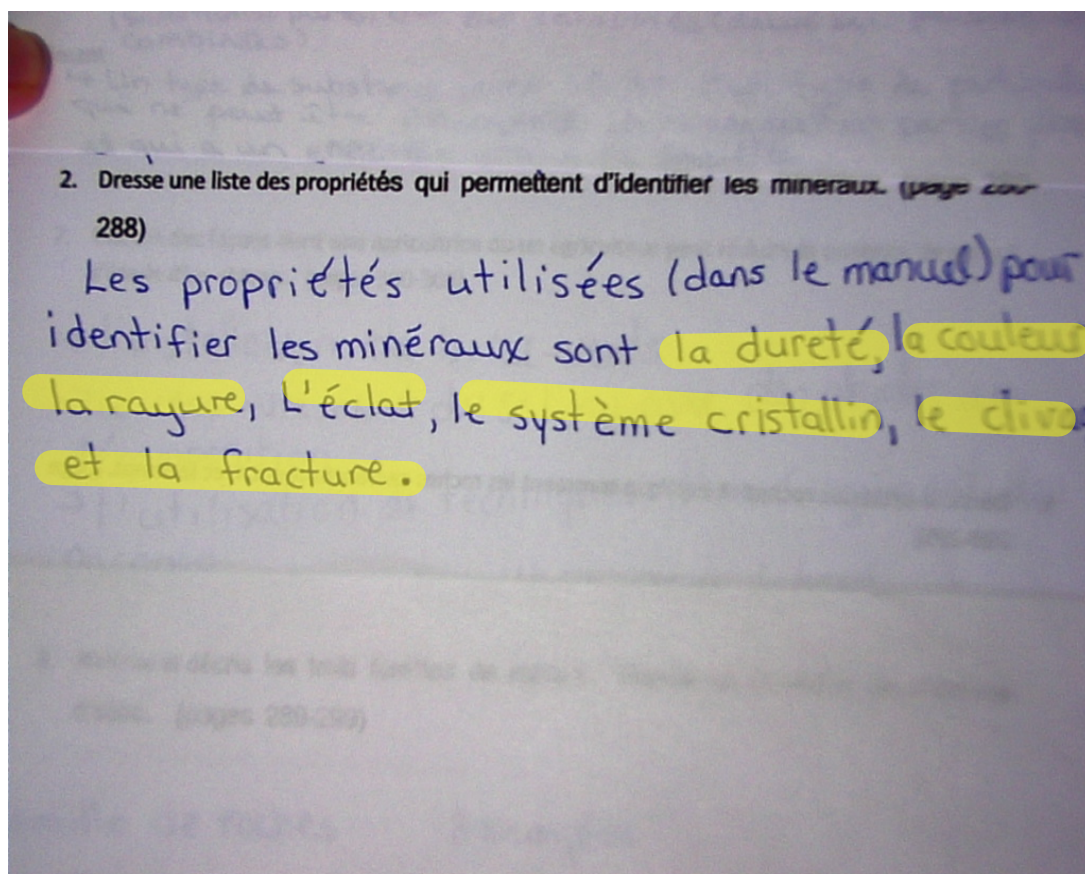 2. Dresse une liste des propriétés qui permettent d'identifier les mineraux. (
288)
Les propriétés utilisées (dans le manuel) pour
identifier les minéraux sont la dureté, la couleur
la rayure, L'éclat, le système cristallin, le
et la fracture.